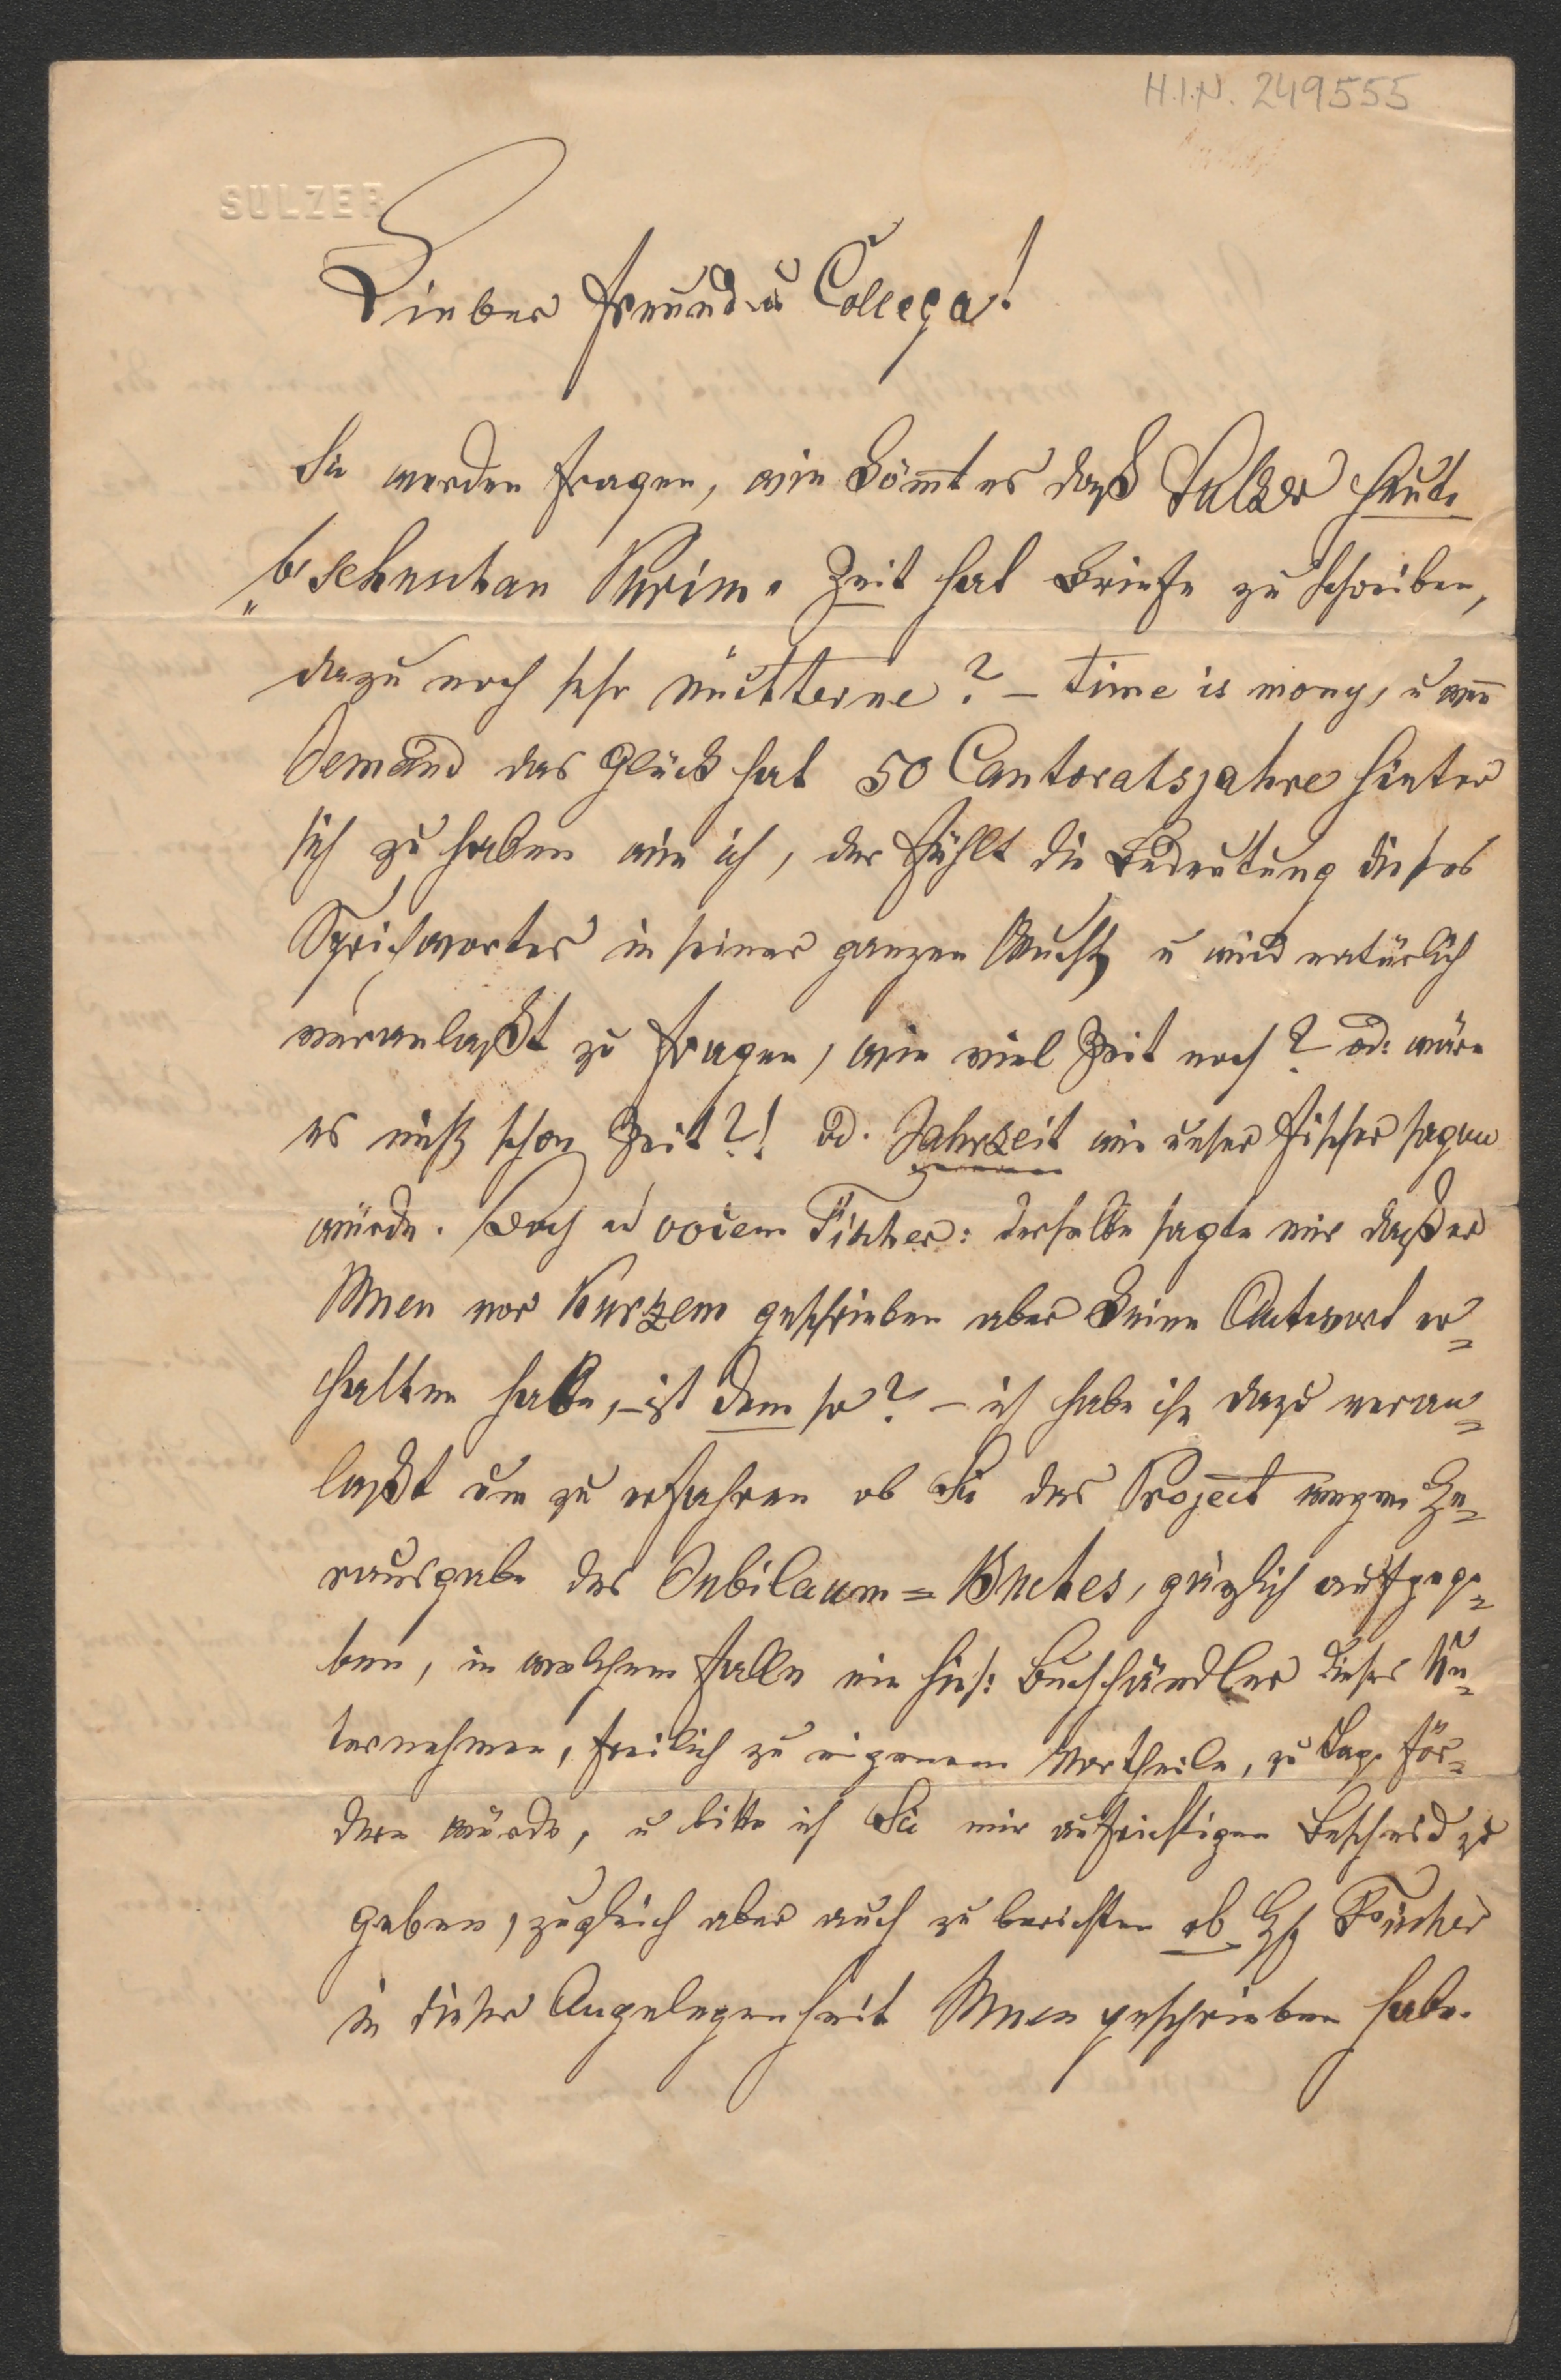 H.I.N. 249555
SULZER
Lieber Freund u Collega!
Sie werden fragen, wie kömt es daß Sulzer heute
"b Schuschan Purim" Zeit hat Briefe zu schreiben,
dazu noch sehr nüchterne? – time is mony, u wen̅
Jemand das Glück hat 50 Cantoratsjahre hinter
sich zu haben wie ich, der fühlt die Bedeutung dieses
Sprichwortes in seiner ganzen Wucht u wird natürlich
veranlaßt zu fragen, wie viel Zeit noch? od: wäre
es nicht schon Zeit?! od. Jahrzeit wie unser Fischer sagen
würde. Doch ad vocem Fischer: derselbe sagte mir daß er
Ihnen vor Kurzem geschrieben aber keine Antwort er=
halten habe, – ist dem so? – ich habe ihn dazu veran=
laßt um zu erfahren ob Sie das Project wegen He=
rausgabe des Jubilaum=Buches, gänzlich aufgege=
ben, in welchem Falle ein hies: Buchhändler dieses Un=
ternehmen, freilich zu eigenem Vortheile, zu Tage för=
dern würde, u bitte ich Sie mir aufrichtigen Bescheid zu
geben, zugleich aber auch zu berichten ob H Fischer
in dieser Angelegenheit Ihnen geschrieben habe.